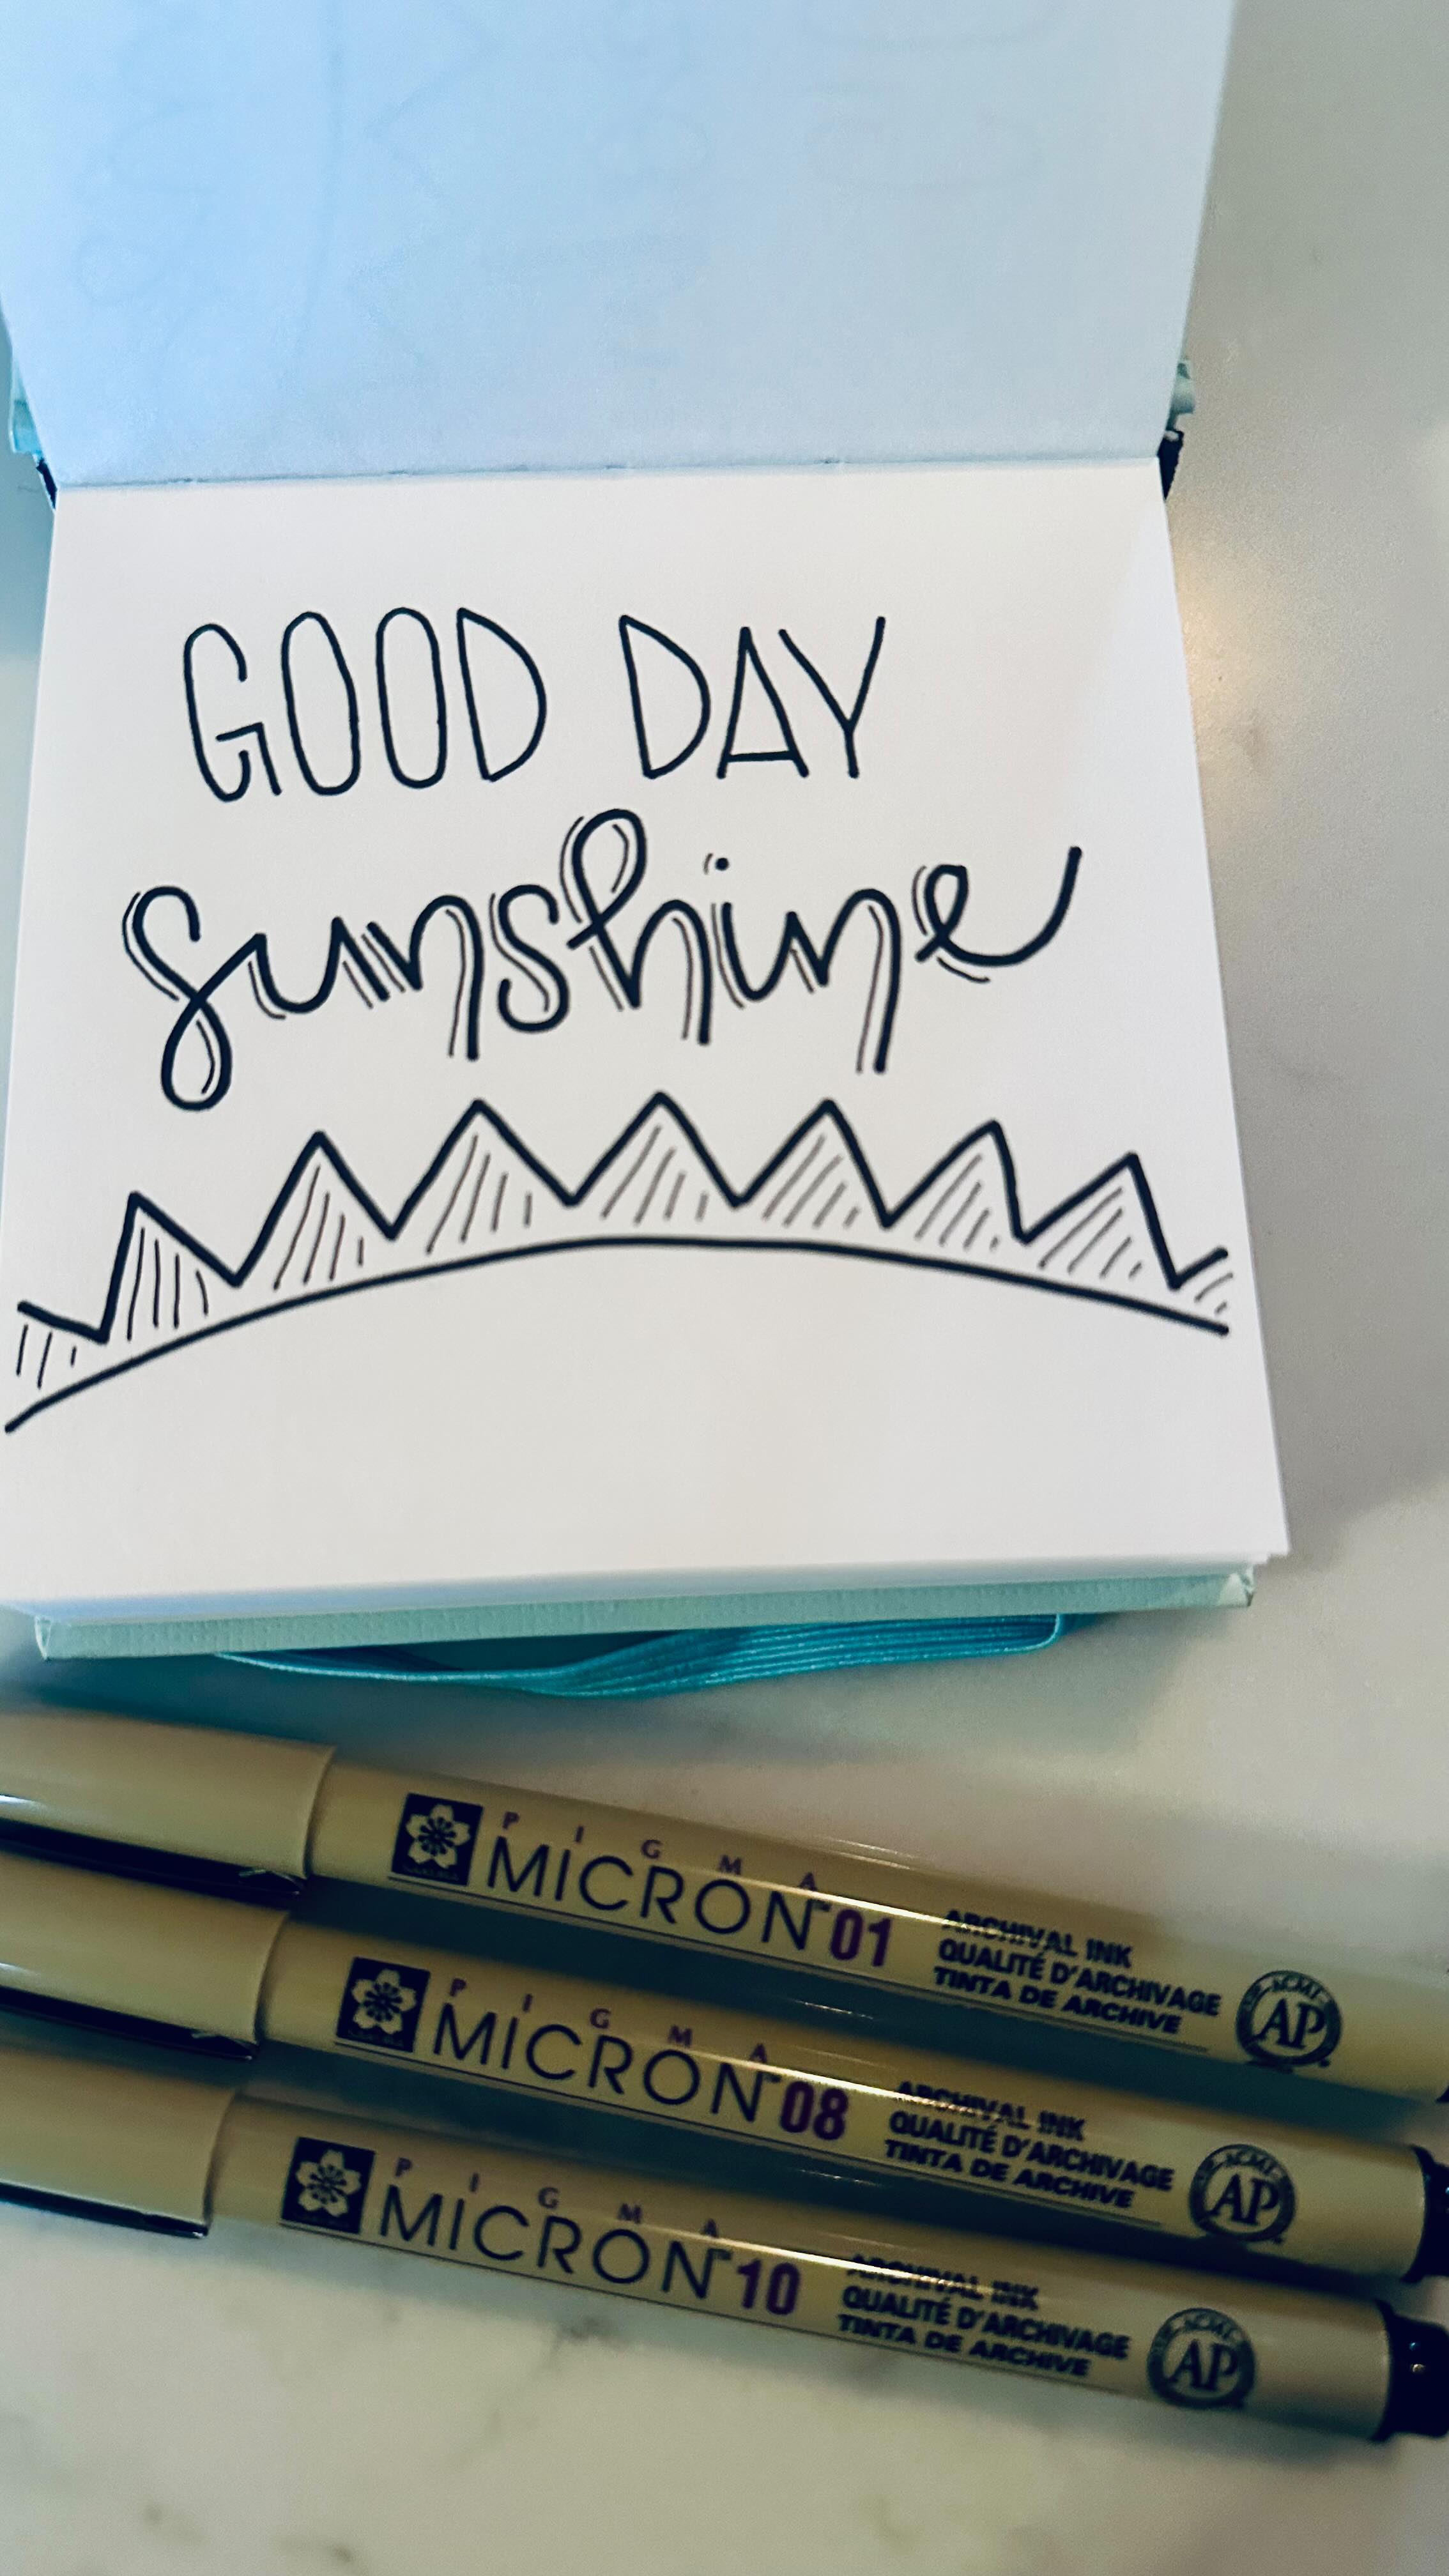 GOOD DAY
sunshine
PIGMA
MICRON™ 01
ARCHIVAL INK
QUALITÉ D'ARCHIVAGE
TINTA DE ARCHIVE
ACMI
AP
PIGMA
MICRON™ 08
ARCHIVAL INK
QUALITÉ D'ARCHIVAGE
TINTA DE ARCHIVE
ACMI
AP
PIGMA
MICRON™ 10
ARCHIVAL INK
QUALITÉ D'ARCHIVAGE
TINTA DE ARCHIVE
ACMI
AP